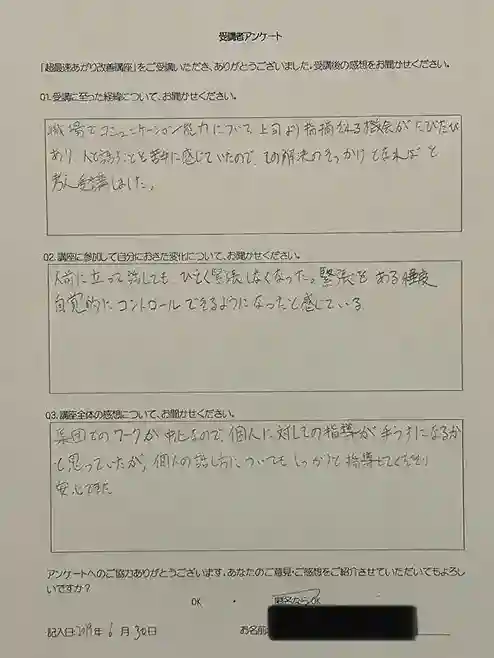 受講者アンケート
「超最速あがり改善講座」をご受講いただき、ありがとうございました。受講後の感想をお聞かせください。
Q1.受講に至った経緯について、お聞かせください。
職場でコミュニケーション能力について上司より指摘される機会がたびたび
あり 人と話すことを苦手に感じていたので、その解決のきっかけとなればと
考え受講しました。
Q2.講座に参加して自分におきた変化について、お聞かせください。
人前に立って話しても、ひどく緊張しなくなった。緊張をある程度
自覚的にコントロールできるようになったと感じている
Q3.講座全体の感想について、お聞かせください。
集団でのワークが中心なので、個人に対しての指導が手うすになるか
と思っていたが、個人の話し方についてもしっかりと指導してくださり
安心できた
アンケートへのご協力ありがとうございます。あなたのご意見・ご感想をご紹介させていただいてもよろし
いですか?
OK ・ 匿名ならOK
記入日:2019年 6月 30日 お名前: